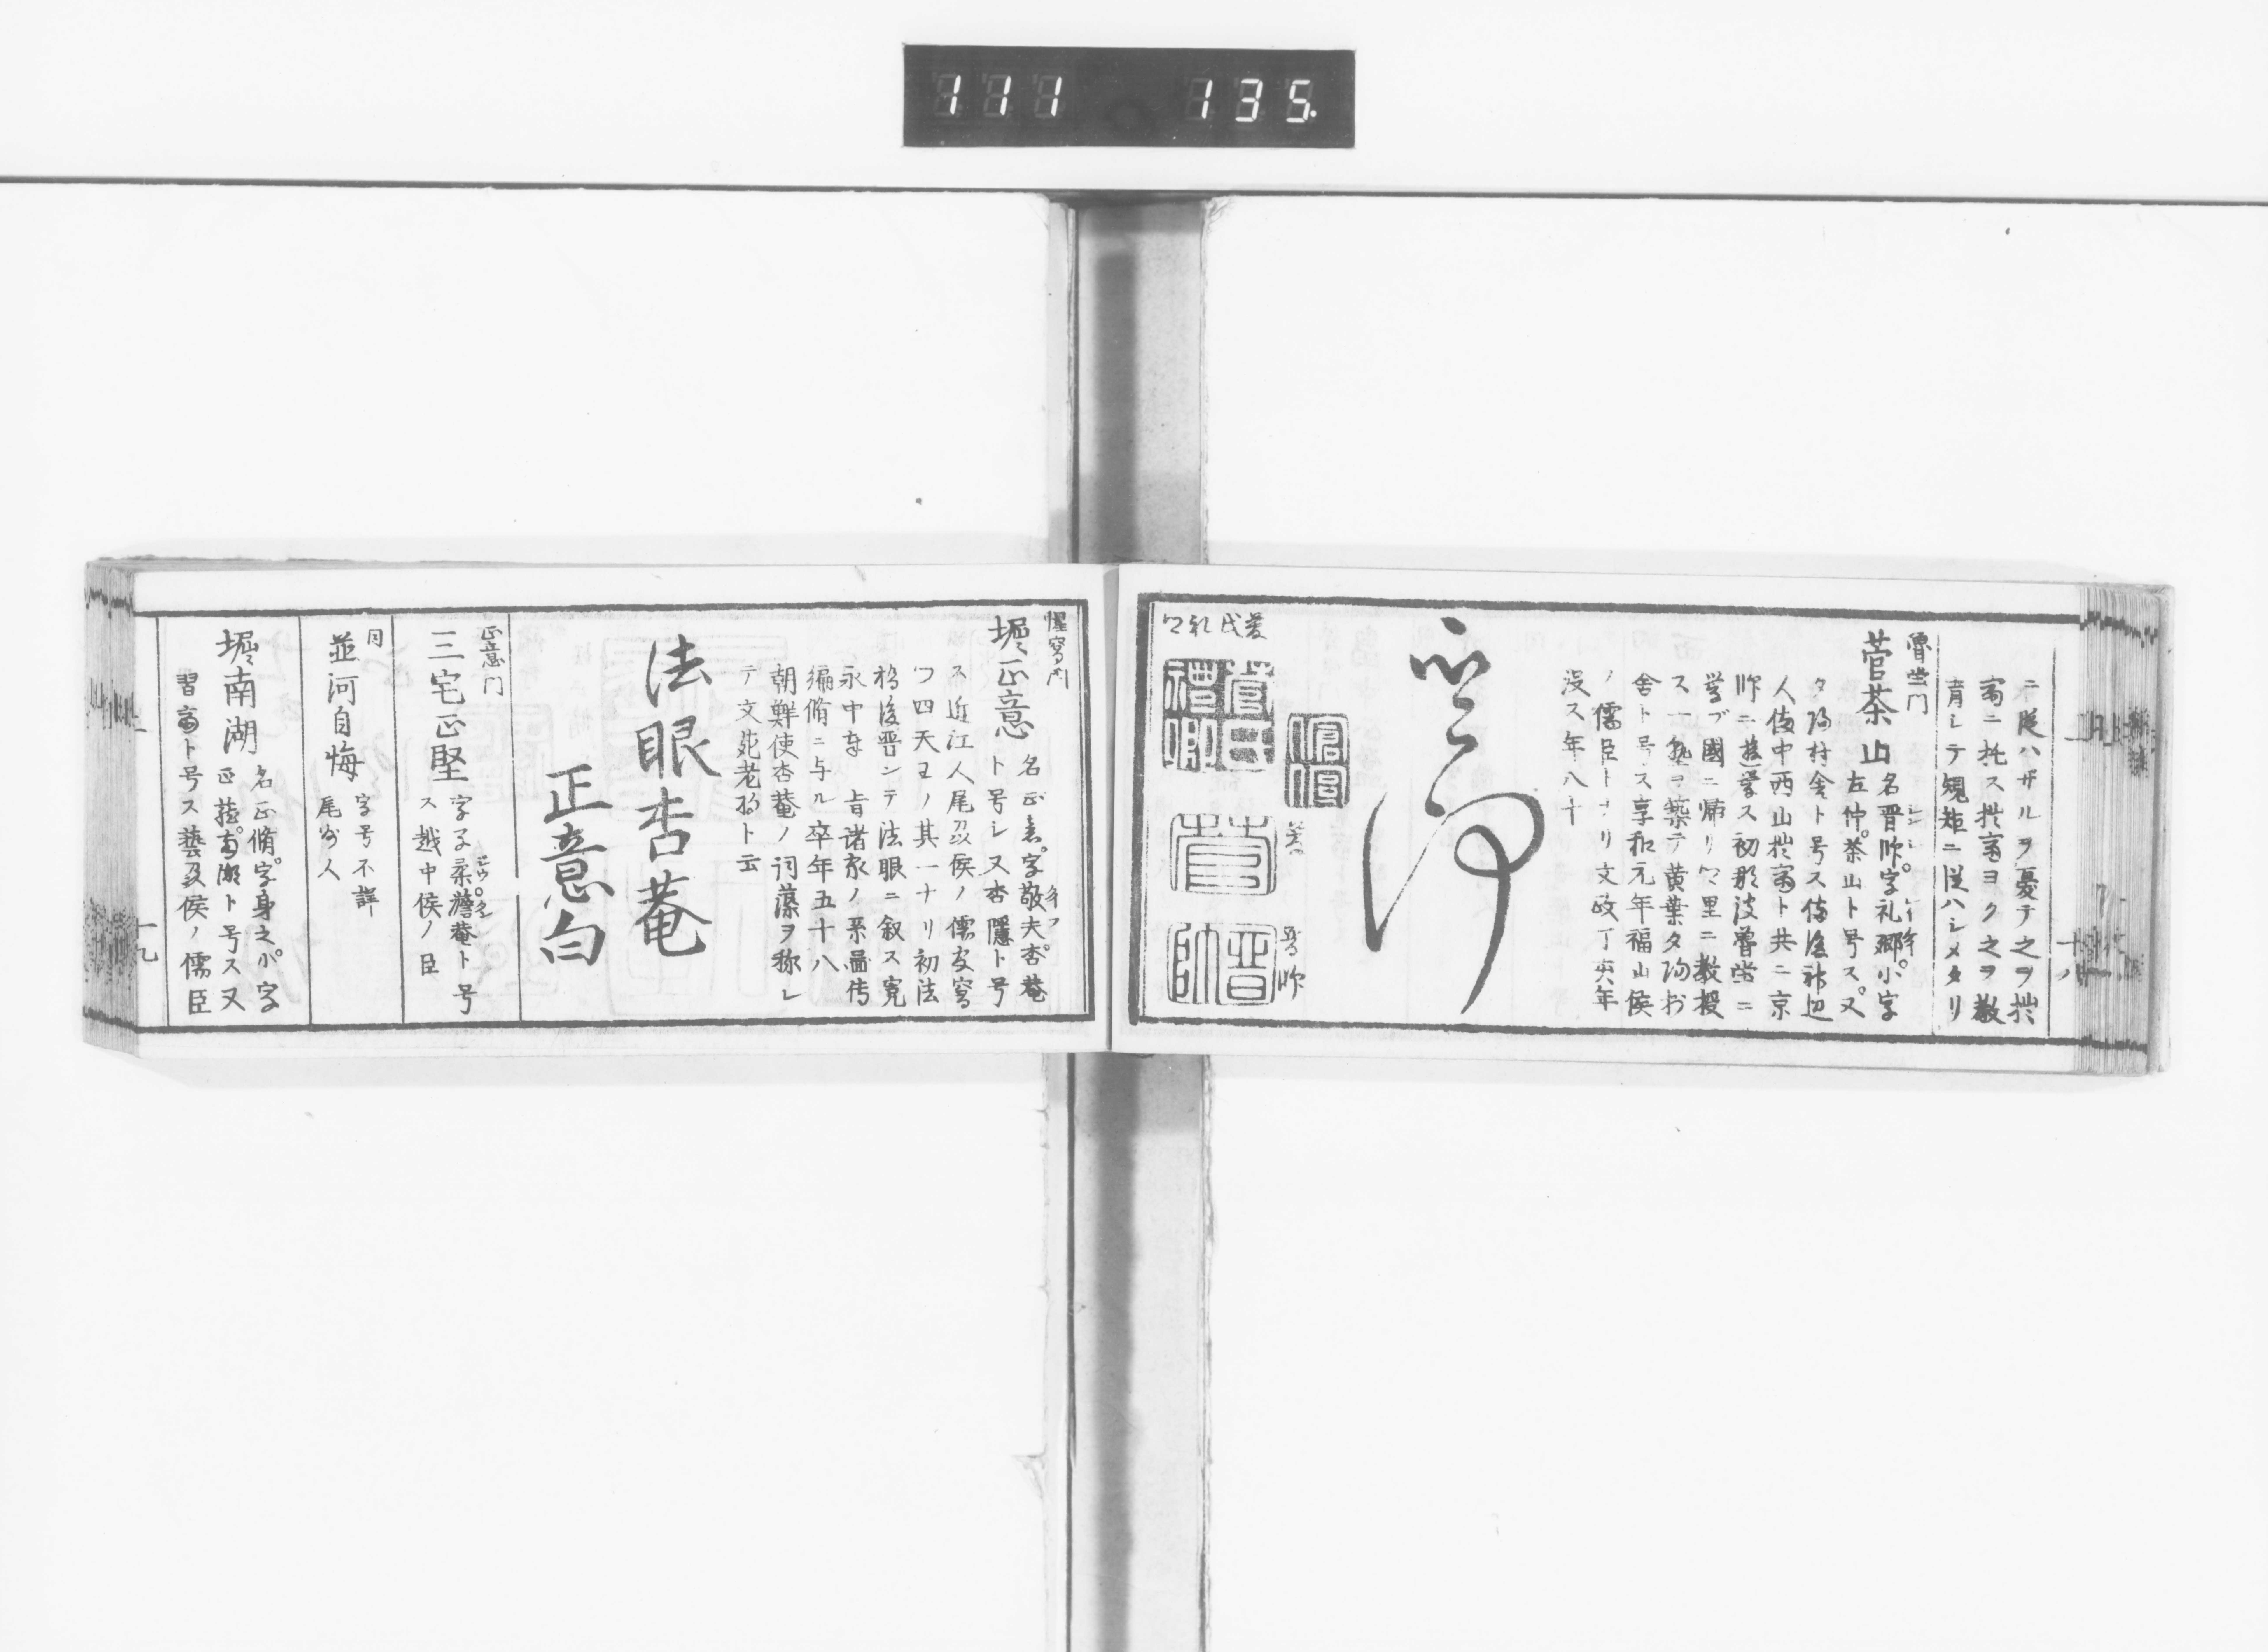 111 135.
ニ從ハザルヲ憂テ之ヲ拙
齋ニ托ス拙齋ヨク之ヲ教
育シテ規矩ニ從ハシメタリ
魯堂門
菅茶山
名晋帥字礼卿小字
左仲茶山ト号ス又
夕陽村舍ト号ス備後神辺
人備中西山拙齋ト共ニ京
師ニ遊學ス初那波魯堂ニ
學ブ國ニ帰リ
里ニ教授
ス一塾ヲ築テ黄葉夕陽村
舍ト号ス享和元年福山侯
ノ儒臣トナリ文政丁亥年
没ス年八十
菅晋
禮卿
菅
晋帥
惺窩門
堀正意
名正意字敬夫杏菴
ト号シ又杏隱ト号
ス近江人尾州侯ノ儒官窩
門四天王ノ其一ナリ初法
橋後晋ンデ法眼ニ叙ス寛
永中奉 旨諸家ノ系圖傳
編脩ニ与ル卒年五十八
朝鮮使杏菴ノ詞藻ヲ称シ
テ文苑老將ト云
法眼杏菴
正意白
正意門
三宅正堅
字子柔澹菴ト号
ス越中侯ノ臣
同
並河自悔
字号不詳
尾州人
堀南湖
名正脩字身之小字
正藏南湖ト号ス又
習齋ト号ス藝州侯ノ儒臣
十八
十九